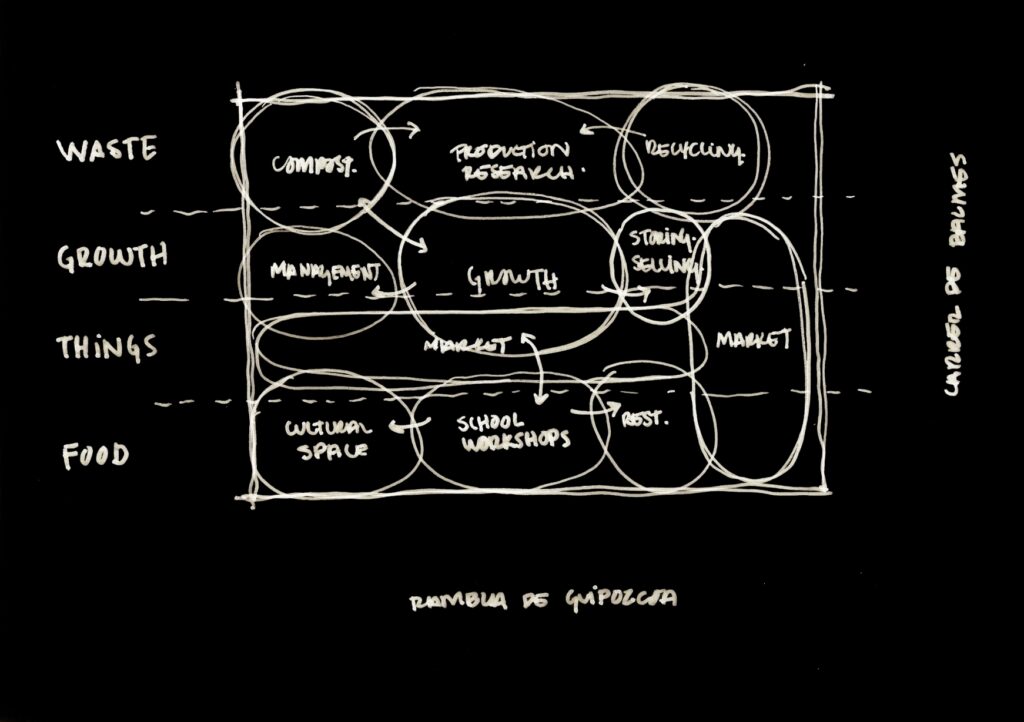 WASTE
COMPOST.
PRODUCTION
RESEARCH.
RECYCLING.
GROWTH
MANAGEMENT
GROWTH
STORING-
SELLING.
THINGS
MARKET
MARKET
FOOD
CULTURAL
SPACE
SCHOOL
WORKSHOPS
REST.
CARRER DE
RAMBLA DE GUIPOZCOA